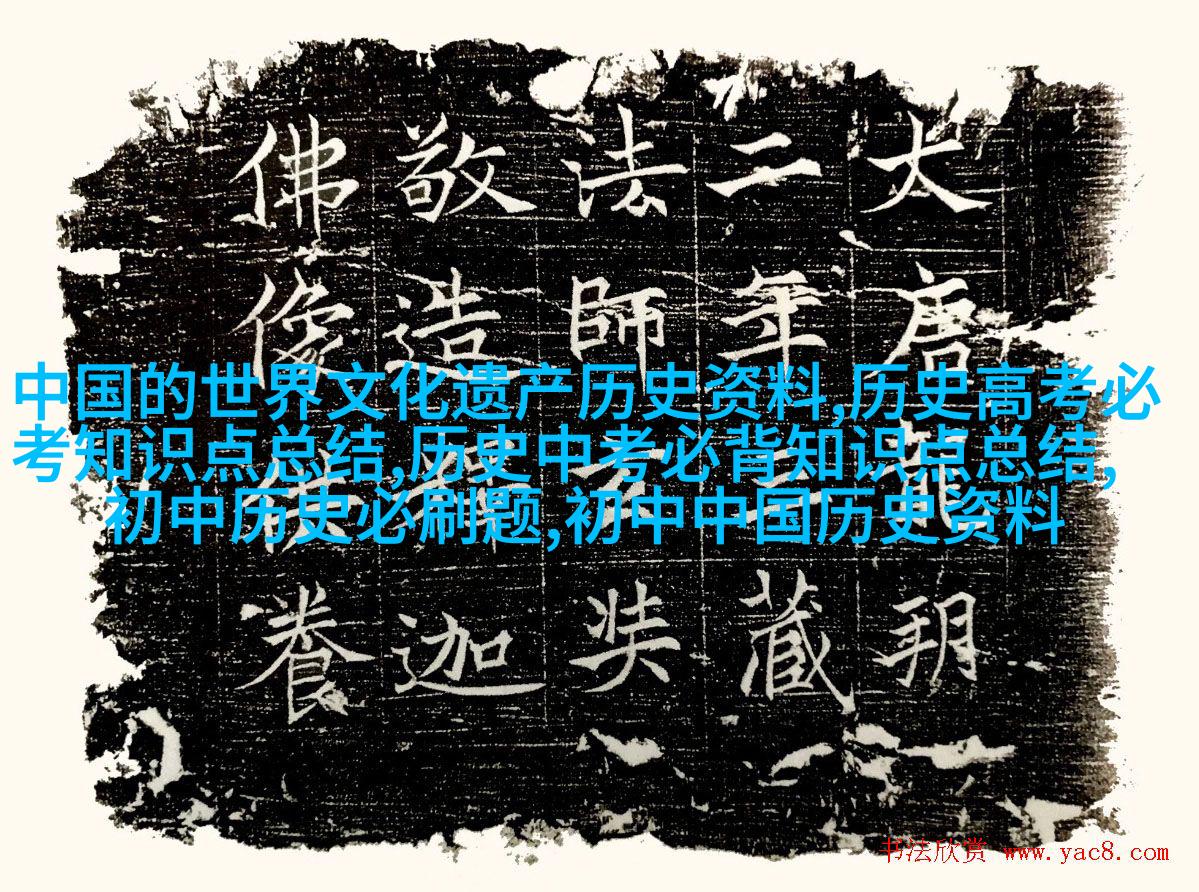 中国的世界文化遗产历史资料,历史高考必
考知识点总结,历史中考必背知识点总结,
初中历史必刷题,初中中国历史资料
大唐龍朔
二年三藏
法師玄奘
敬造釋迦
佛像供養
书法欣赏 www.yac8.com